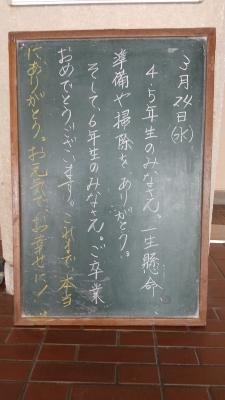 3月24日(水)
4.5年生のみなさん、一生懸命、
準備や掃除を、ありがとう。
そして、6年生のみなさん。ご卒業
おめでとうございます。これまで、本当
に、ありがとう。お元気で、お幸せに!